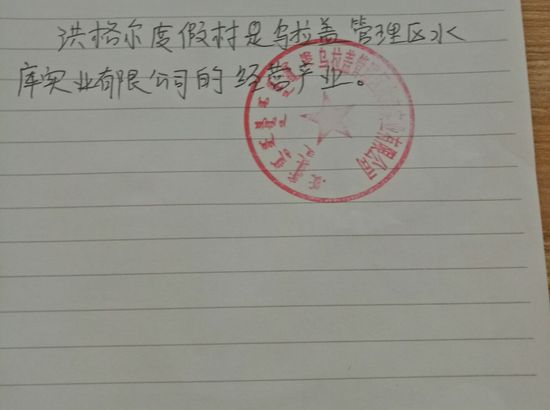 洪格尔度假村是乌拉盖管理区水
库实业有限公司的经营产业。
乌拉盖管理区水库实业有限公司